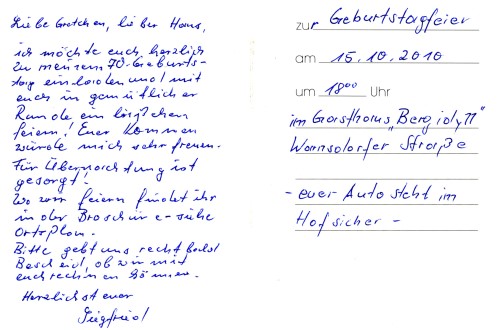 Liebe Gretchen, lieber Hans,
ich möchte euch herzlich
zu meinem 70. Geburts-
tag einladen und mit
euch in gemütlicher
Runde ein bißchen
feiern! Euer Kommen
würde mich sehr freuen.
Für Übernachtung ist
gesorgt.
Wo wir feiern findet ihr
in der Broschüre - siehe
Ortsplan.
Bitte gebt uns recht bald
Bescheid, ob wir mit
euch rechnen können.
Herzlichst euer
Siegfried
zur Geburtstagfeier
am 15.10.2010
um 18⁰⁰ Uhr
im Gasthaus „Bergidyll"
Wansdorfer Straße
- euer Auto steht im
Hof sicher -